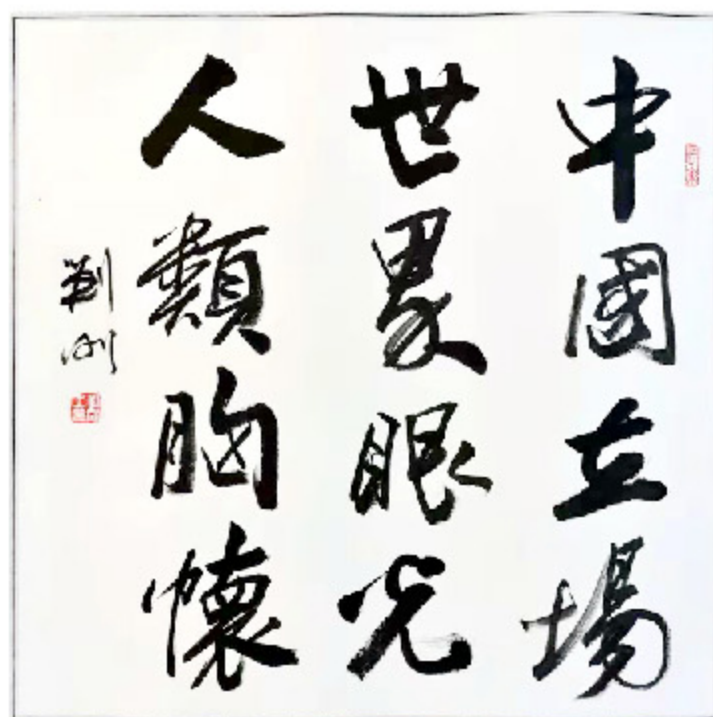 中國立場
世界眼光
人類胸懷